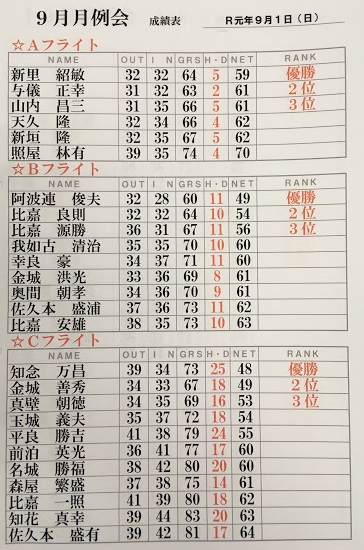 9月月例会 成績表 R元年9月1日(日)
☆Aフライト
NAME OUT I N GRS H・D NET RANK
新里 紹敏 32 32 64 5 59 優勝
与儀 正幸 31 32 63 2 61 2位
山内 昌三 31 35 66 5 61 3位
天久 隆 32 34 66 4 62
新垣 隆 32 35 67 5 62
照屋 林有 39 35 74 4 70
☆Bフライト
NAME OUT I N GRS H・D NET RANK
阿波連 俊夫 32 28 60 11 49 優勝
比嘉 良則 32 32 64 10 54 2位
比嘉 源勝 36 31 67 11 56 3位
我如古 清治 35 35 70 10 60
幸良 豪 34 37 71 11 60
金城 洪光 33 36 69 8 61
奥間 朝孝 34 36 70 9 61
佐久本 盛浦 37 36 73 11 62
比嘉 安雄 38 35 73 10 63
☆Cフライト
NAME OUT I N GRS H・D NET RANK
知念 万昌 39 34 73 25 48 優勝
金城 善秀 34 33 67 18 49 2位
真壁 朝徳 34 35 69 16 53 3位
玉城 義夫 35 37 72 18 54
平良 勝吉 41 38 79 24 55
前泊 英光 36 41 77 17 60
名城 勝福 38 42 80 20 60
森屋 繁盛 37 38 75 14 61
比嘉 一照 41 39 80 18 62
知花 真幸 39 44 83 20 63
佐久本 盛有 39 42 81 17 64